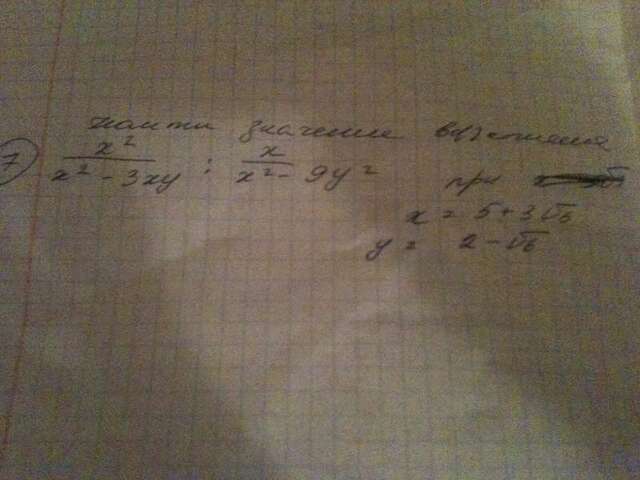 найти значение выражения
7 x²/(x² - 3xy) : x/(x² - 9y²) при
x = 5 + 3√6
y = 2 - √6